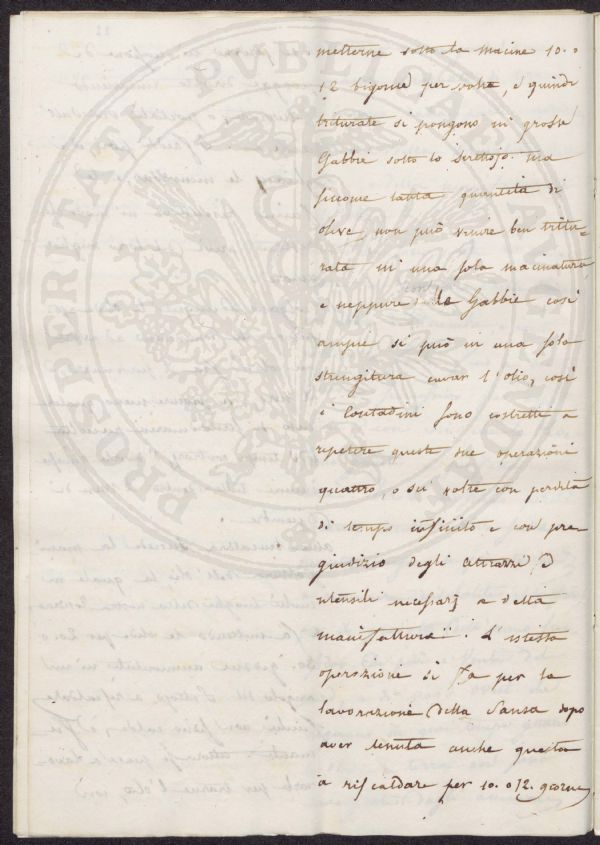 metterne sotto la macine 10. o
12 bigonie per volta, e quindi
triturate si pongono in grosse
Gabbie sotto lo strettojo. ma
siccome tanta quantità di
olive, non può venire ben tritu=
rata in una sola macinatura
e neppure le Gabbie così
ampie si può in una sola
strengitura cavar l'olio, così
i Contadini sono costretti a
ripetere queste due operazioni
quattro, o sei volte con perdita
di tempo infinito e con pre=
giudizio degli attrazzi, ed
utensili necessarj a detta
manifattura. L'istessa
operazione si fa per la
lavorazione della Sansa dopo
aver tenuta anche questa
a riscaldare per 10. o 12. giorni,
PROSPERITATI PUBL AUGENDAE